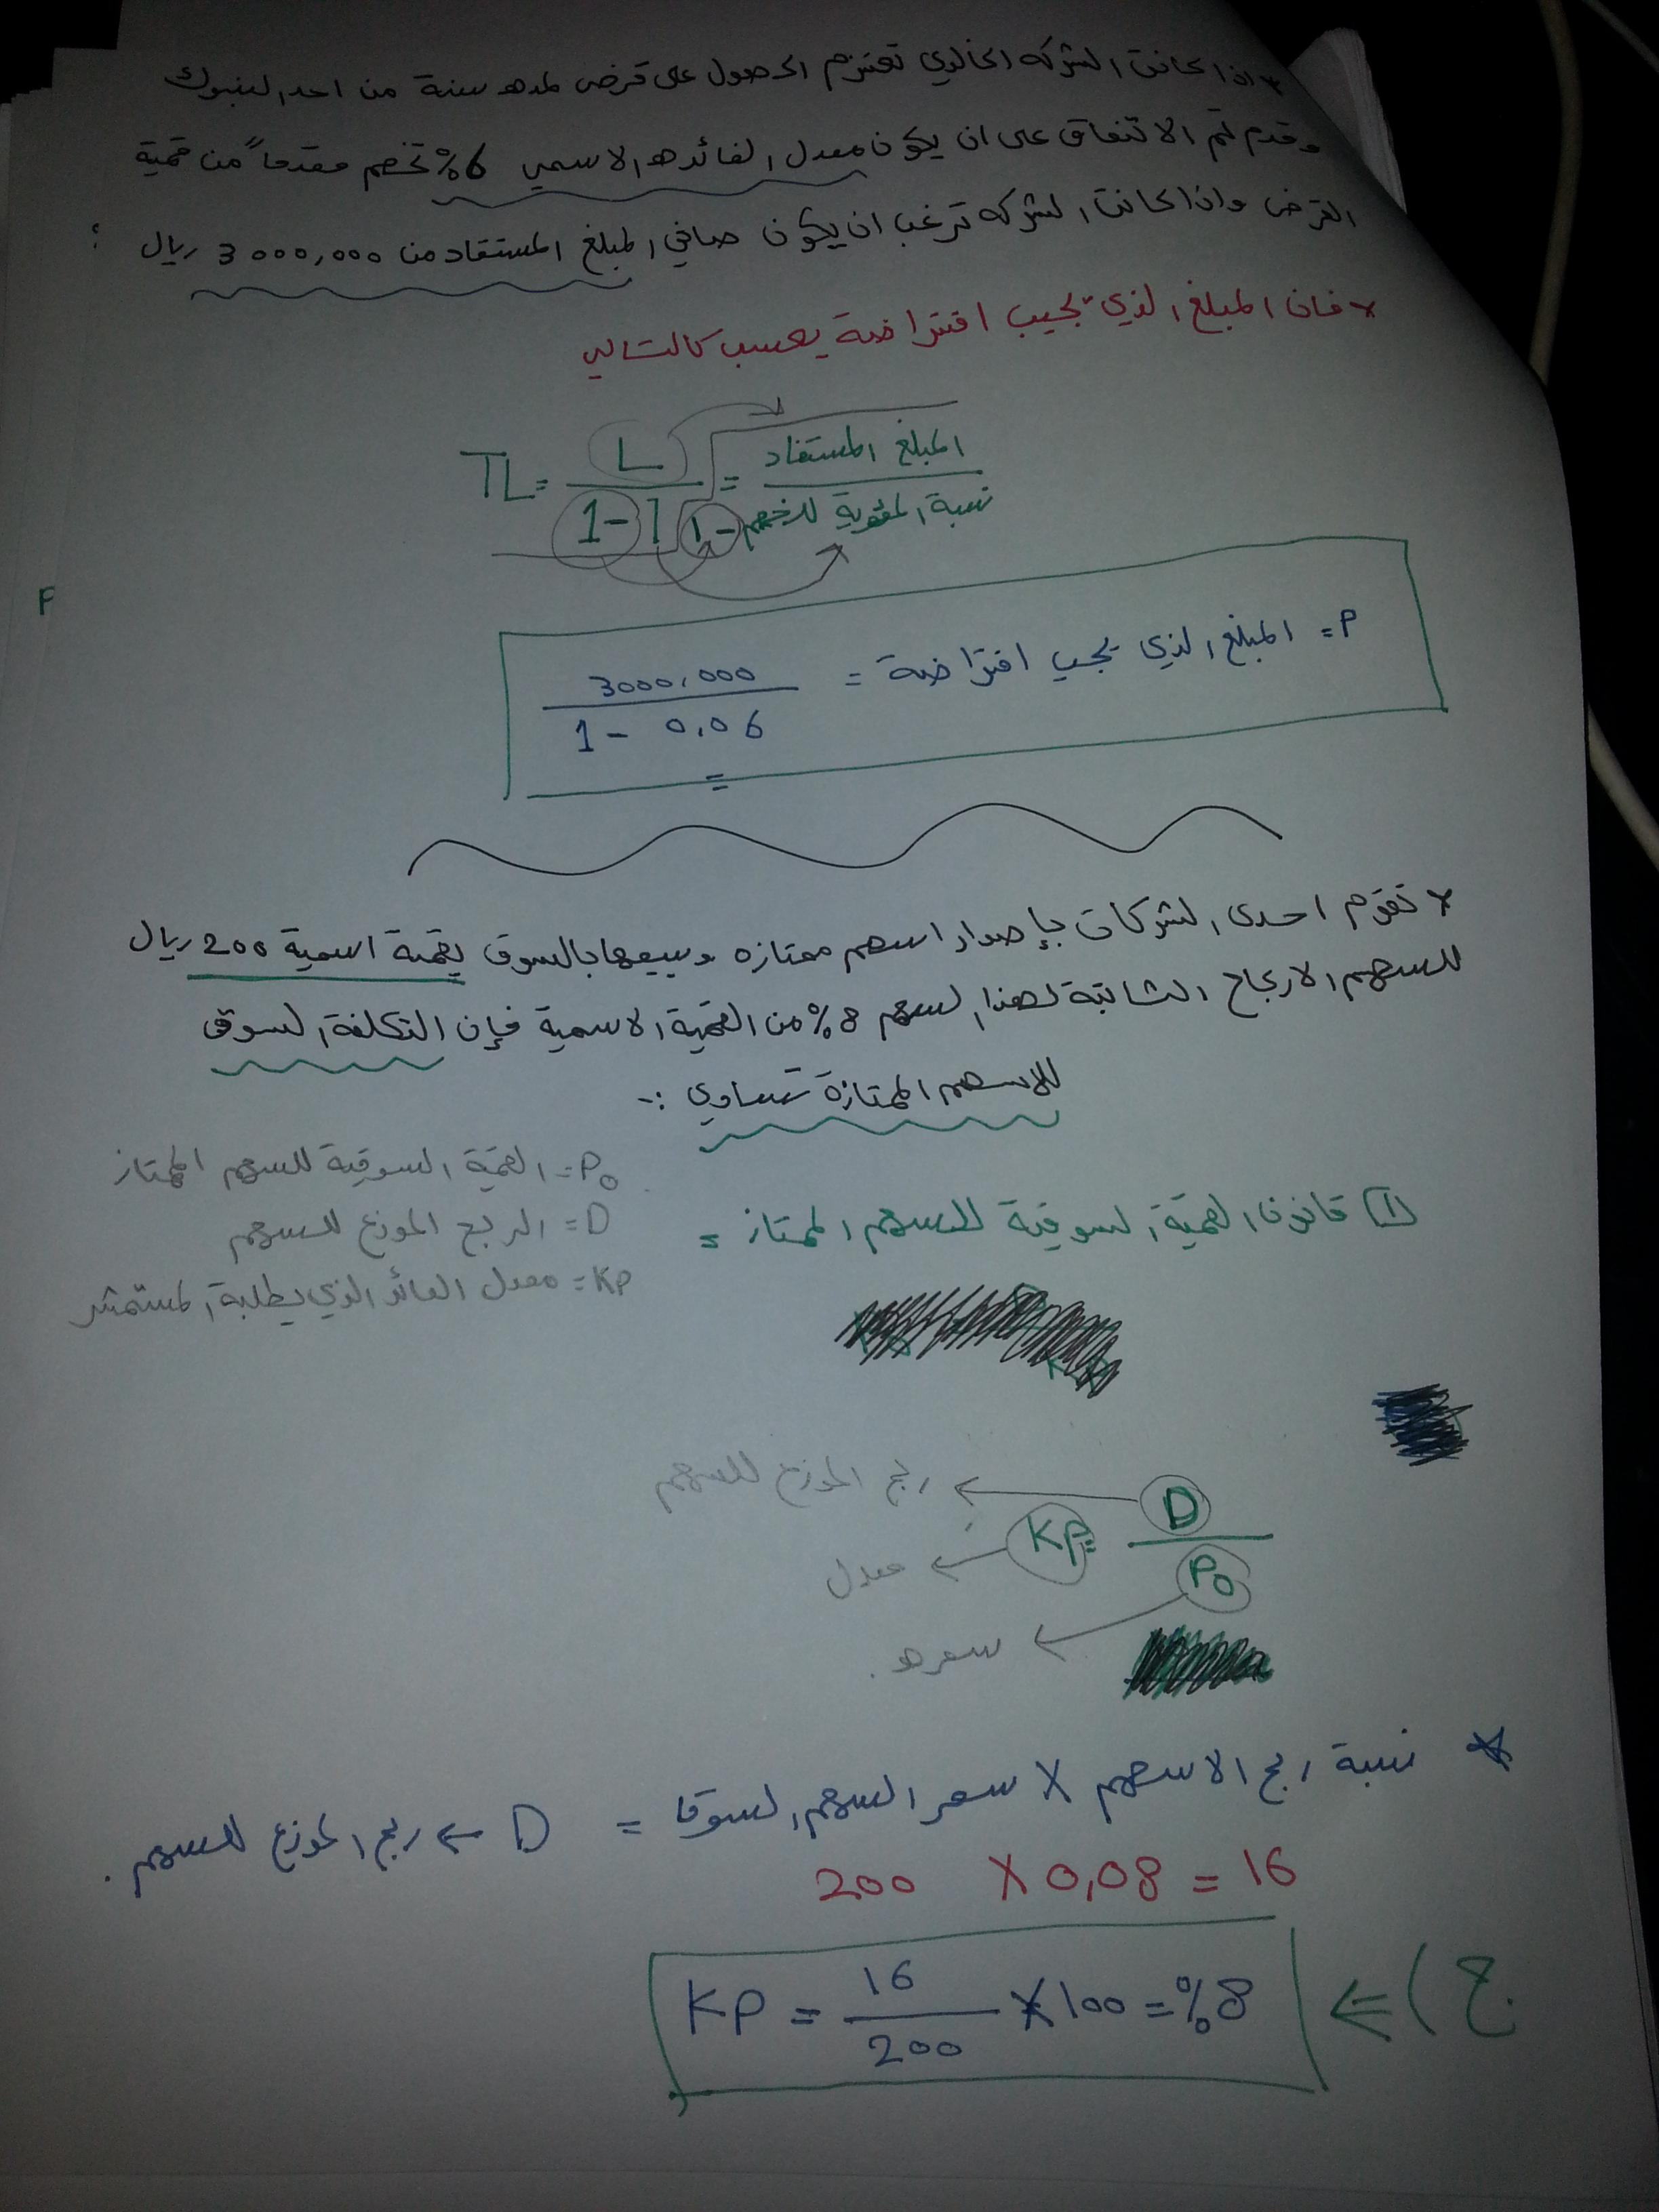 * اذا كانت الشركه الخالدي تعتزم الحصول على قرض لمده سنة من احد البنوك
وقدم تم الاتفاق على ان يكون معدل الفائده الاسمي 6% تخصم مقدماً من قمية
القرض واذا كانت الشركه ترغب ان يكون صافي المبلغ المستفاد من 3000,000 ريال :
* فان المبلغ الذي يجيب اقتراضة يحسب كالتالي
TL = L / 1 - I = المبلغ المستفاد / 1 - نسبة المئوية للخصم
F
P = المبلغ الذي يجب اقتراضة = 3000,000 / 1 - 0,06
=
* تقوم احدى الشركات بإصدار اسهم ممتازه وبيعها بالسوق بقمة اسمية 200 ريال
للسهم الارباح الثابتة لهذا السهم 8% من القمية الاسمية فإن التكلفة السوقى
للاسهم الممتازة تساوي :-
1 قانون القمية السوقية للسهم الممتاز =
P0 = القمة السوقية للسهم الممتاز
D = الربح الموزع للسهم
KP = معدل العائد الذي يطلبة المستمثر
D ← ربح الموزع للسهم
KP = ← معدل
P0 ← سعره .
* نسبة ربح الاسهم X سعر السهم السوقا = D ← ربح الموزع للسهم .
200 X 0,08 = 16
ج) ⇐ KP = 16 / 200 X 100 = %8